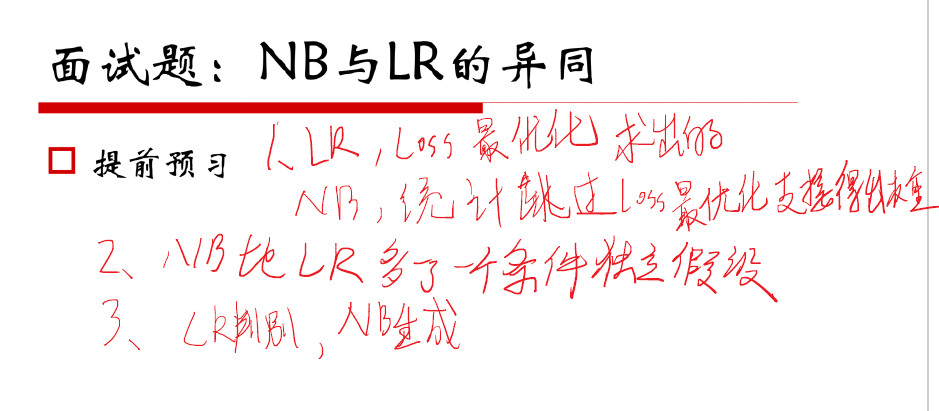 面试题：NB与LR的异同
提前预习
1、LR，Loss最优化求出的
NB，统计跳过Loss最优化直接得出权重
2、NB比LR多了一个条件独立假设
3、LR判别，NB生成